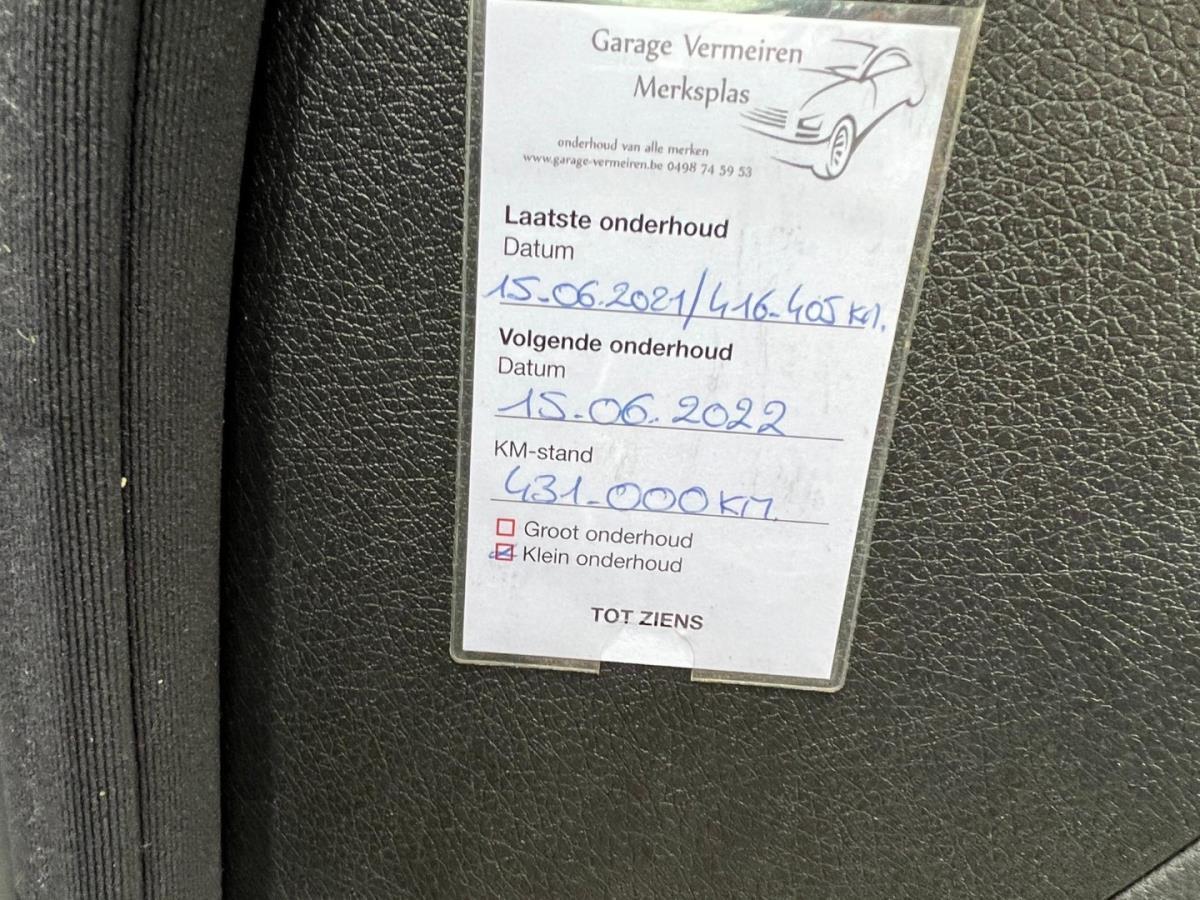 Garage Vermeiren
Merksplas
onderhoud van alle merken
www.garage-vermeiren.be 0498 74 59 53
Laatste onderhoud
Datum
15-06.2021/416-405 KM.
Volgende onderhoud
Datum
15-06.2022
KM-stand
431-000 KM.
Groot onderhoud
Klein onderhoud
TOT ZIENS